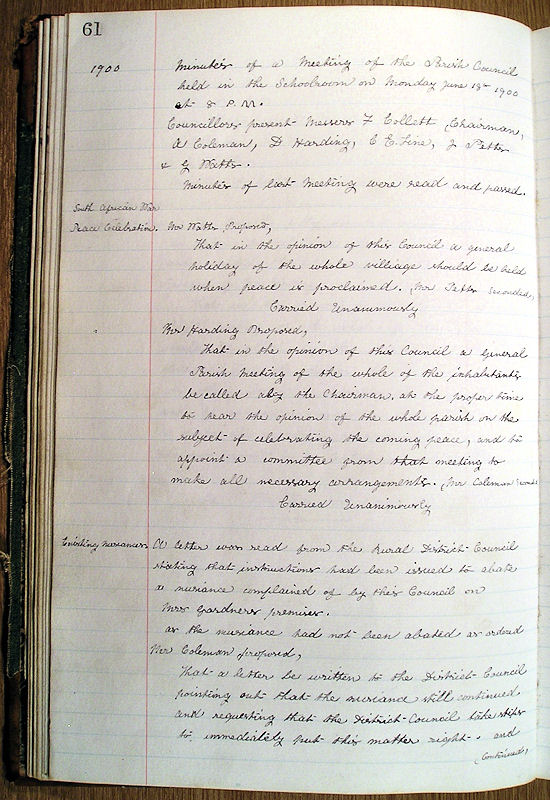 61
1900
Minutes of a Meeting of the Parish Council
held in the Schoolroom on Monday June 18th 1900
at 8 P.M.
Councillors present Messers F Collett Chairman,
A Coleman, D Harding, C E Line, J Petts
& G Watts.
Minutes of last Meeting were read and passed.
South African War
Peace Celebration.
Mr Watts Proposed,
That in the opinion of this Council a general
holiday of the whole villiage should be held
when peace is proclaimed. (Mr Petts seconded)
Carried Unanimously
Mr Harding Proposed,
That in the opinion of this Council a General
Parish Meeting of the whole of the inhabitants
be called by the Chairman, at the proper time
to hear the opinion of the whole parish on the
subject of celebrating the coming peace, and to
appoint a committee from that meeting to
make all necessary arrangements. (Mr Coleman
Carried Unanimously
Existing nuisances
A letter was read from the Rural District Council
stating that instructions had been issued to abate
a nusiance complained of by this Council on
Mrs Gardners premises.
As the nusiance had not been abated as ordered
Mr Coleman proposed,
That a letter be written to the District Council
pointing out that the nusiance still continued
and requesting that the District Council take steps
to immediately put this matter right. and
(Continued)